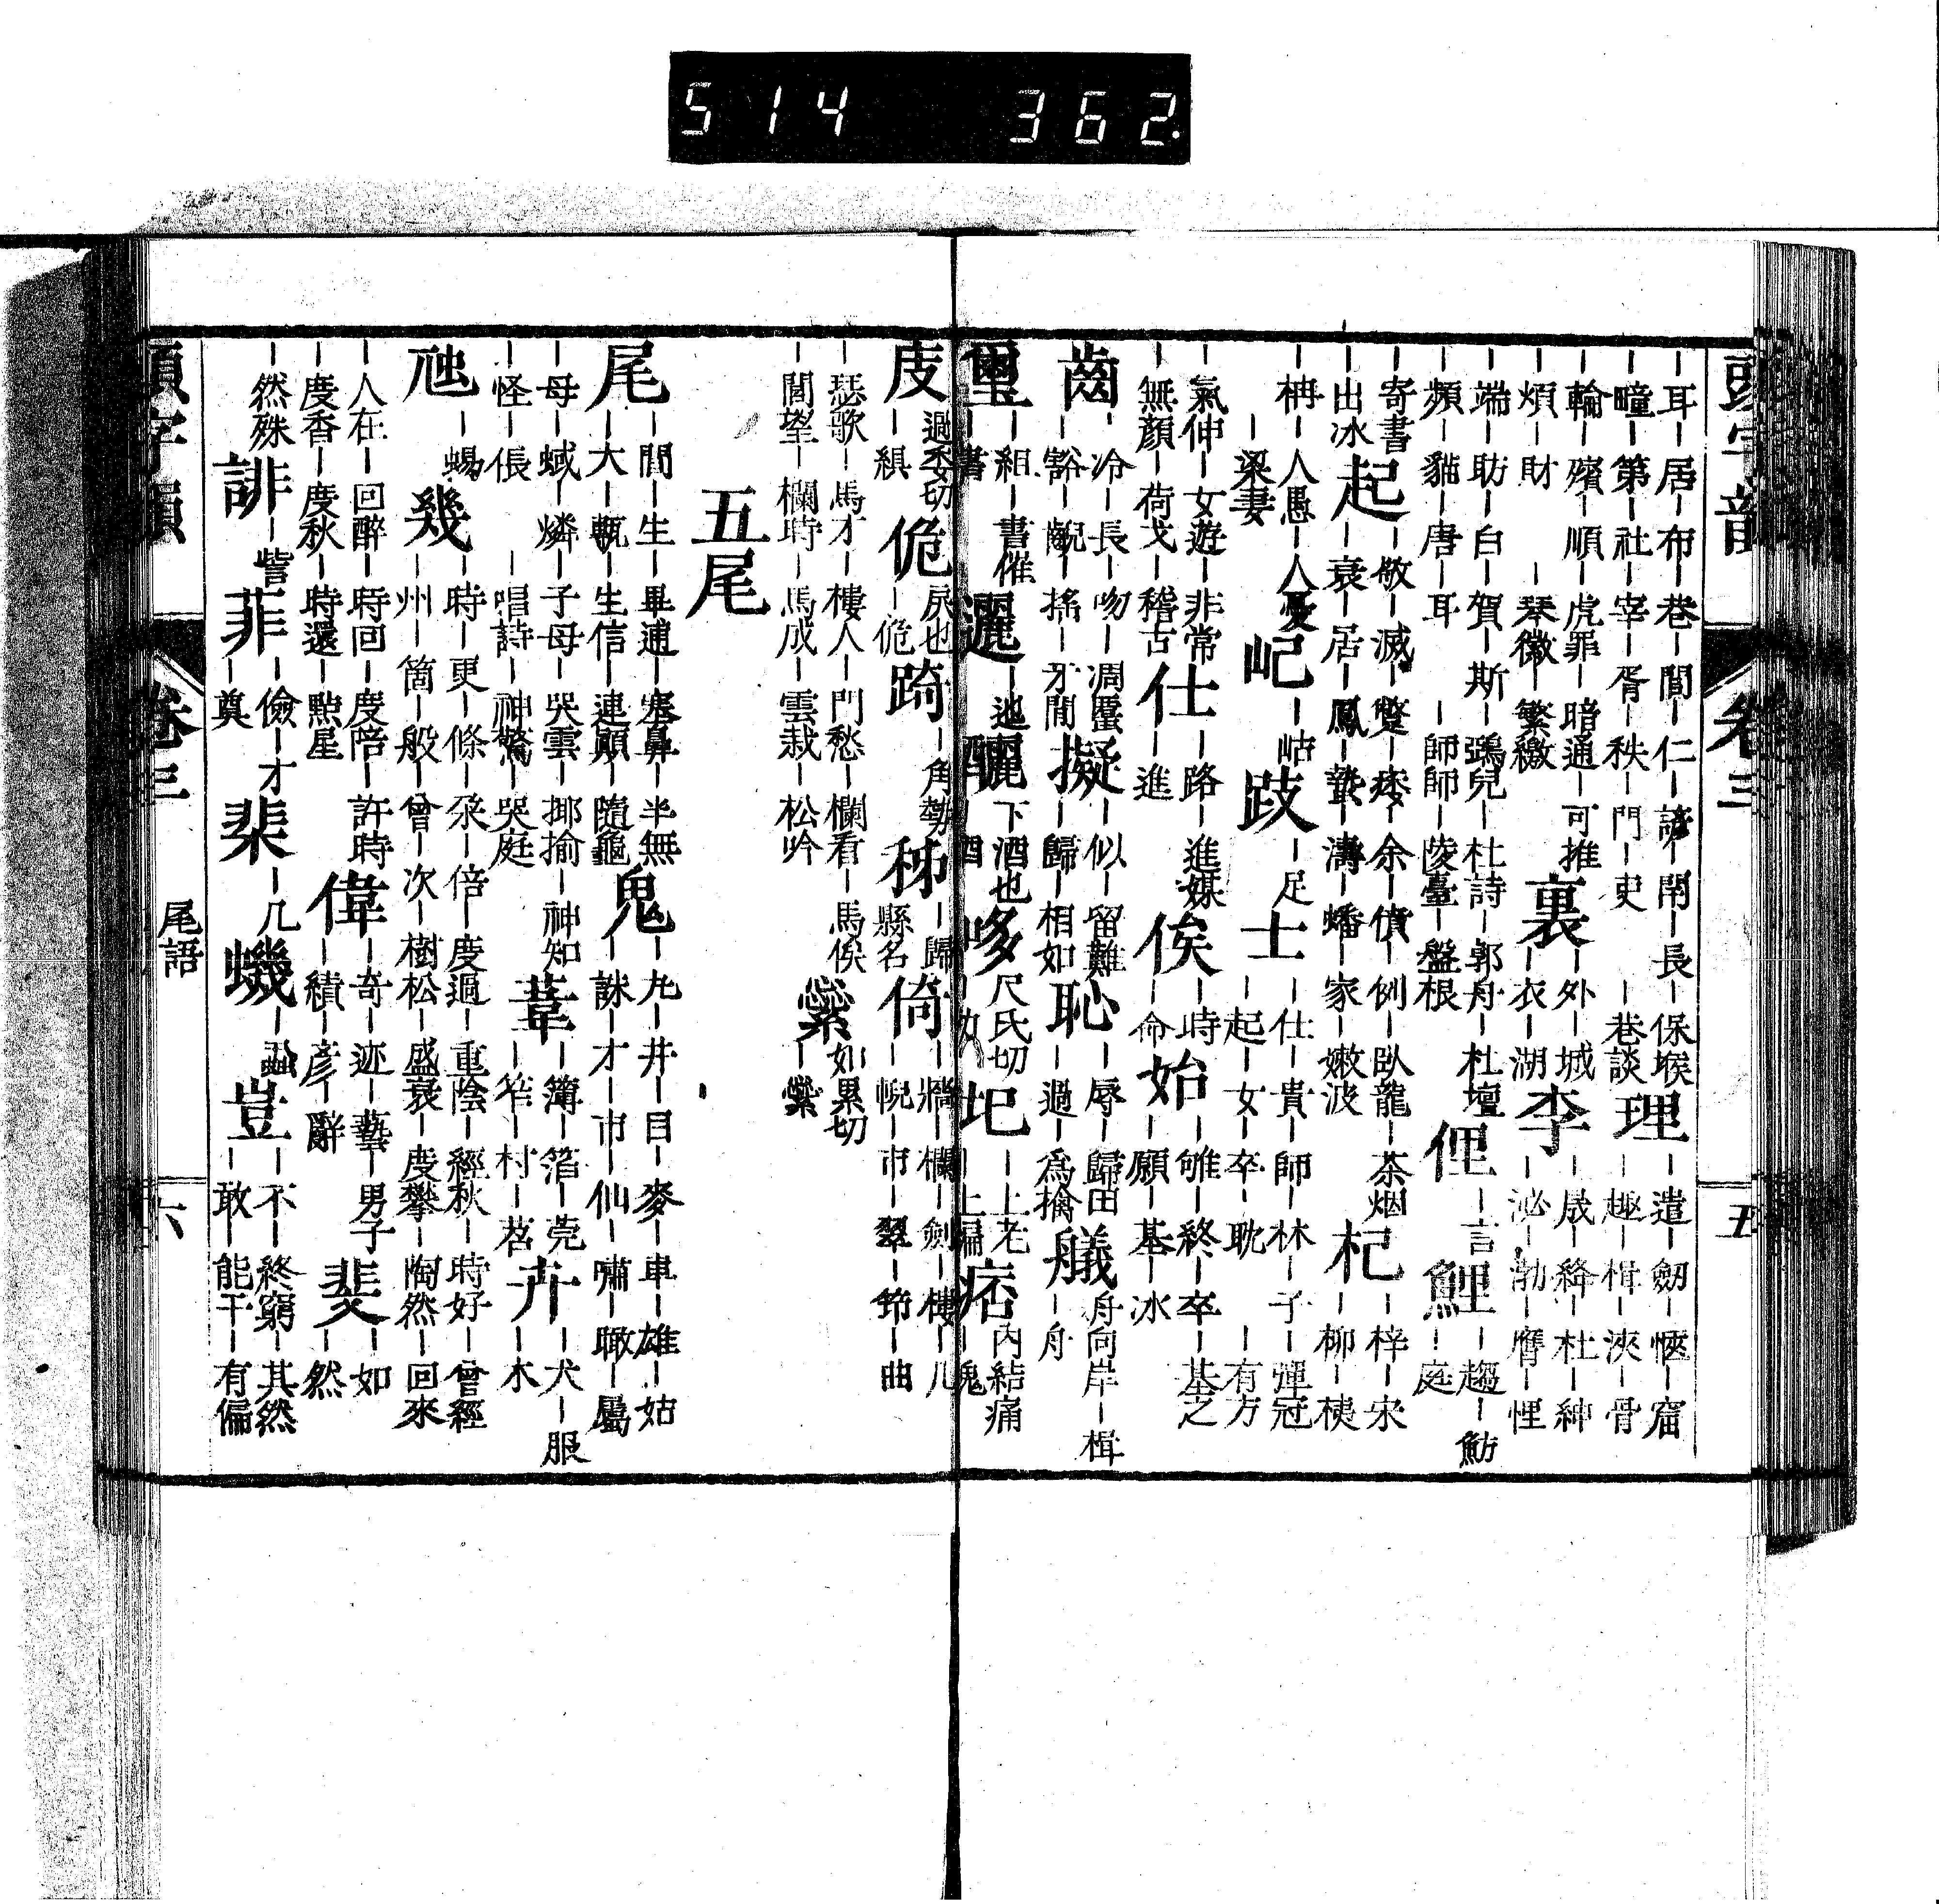 514 362.
卷三 五
耳｜居｜布｜巷｜間｜仁｜諺｜閈｜長｜保堠
疃｜第｜社｜宰｜胥｜秩｜門｜吏｜巷談
理｜遣｜劒｜愜｜窟
｜趣｜楫｜浹｜骨
輪｜殯｜順｜虎罪｜暗通｜可推
煩｜財｜琴徽｜繁繳
裏｜外｜城
｜衣｜湖
李｜晟｜絳｜杜｜紳
｜泌｜渤｜膺｜悝
端｜助｜白｜賀｜斯｜鵶兒｜杜詩｜郭舟｜杜壇
頻｜貓｜唐｜耳｜師師｜陵臺｜盤根
俚｜言
鯉｜趨｜魴
｜庭
寄書
出冰
起｜敬｜滅｜蹩｜痿｜余｜債｜例｜臥龍｜茶烟
｜衰｜居｜鳳｜蟄｜濤｜蟠｜家｜嫩波
杞｜梓｜宋
｜柳｜桋
｜柟｜人愚｜人憂
｜梁妻
屺｜岵
跂｜足
士｜仕｜貴｜師｜林｜子｜彈冠
｜起｜女｜卒｜耽｜有方
氣伸｜女遊｜非常
無顏｜荷戈｜稽古
仕｜路｜進媒
｜進
俟｜時
｜命
始｜雎｜終｜卒｜基之
｜願｜基｜冰
齒｜冷｜長｜吻｜凋䘌
｜豁｜齯｜搖｜牙閒
擬｜似｜留難
｜歸｜相如
恥｜辱｜歸田
｜過｜為擒
艤舟向岸｜楫
｜舟
璽｜組｜書催
｜書
邐｜迤
釃下酒也
｜酒
哆尺氏切
圯｜上老
｜上編
痞內結痛
｜塊
庋過委切
｜䫌
佹戾也
｜佹
踦｜角勢
秭｜歸
縣名
倚｜牆｜欄｜劍｜樓｜几
｜幌｜市｜翠｜筇｜曲
瑟歌｜馬才｜樓人｜門愁｜欄看｜馬俟
閭望｜欄時｜馬成｜雲栽｜松吟
繠如累切
｜繠
五尾
尾｜閭｜生｜畢逋｜塞鼻｜半無
｜大｜瓻｜生信｜連顛｜隨龜
鬼｜九｜井｜目｜麥｜車｜雄｜姑
｜誅｜才｜市｜仙｜嘯｜瞰｜屬
母｜蜮｜燐｜子母｜哭雲｜揶揄｜神知
怪｜倀｜唱詩｜神驚｜哭庭
葦｜簿｜箔｜莞
｜笮｜村｜苕
卉｜犬｜服
｜木
虺｜蜴
幾｜時｜更｜條｜飛｜倍｜度過｜重陰｜經秋｜時好｜曾經
｜州｜箇｜般｜曾｜次｜樹松｜盛衰｜度攀｜陶然｜回來
人在｜回醉｜時回｜度陪｜許時
度香｜度秋｜時還｜點星
偉｜奇｜迹｜藝｜男子
｜績｜彥｜辭
斐｜如
｜然
然殊
誹｜訾
菲｜儉｜才
｜奠
棐｜几
蟣｜蝨
豈｜不｜終窮｜其然
｜敢｜能干｜有偏
卷三 尾語 六